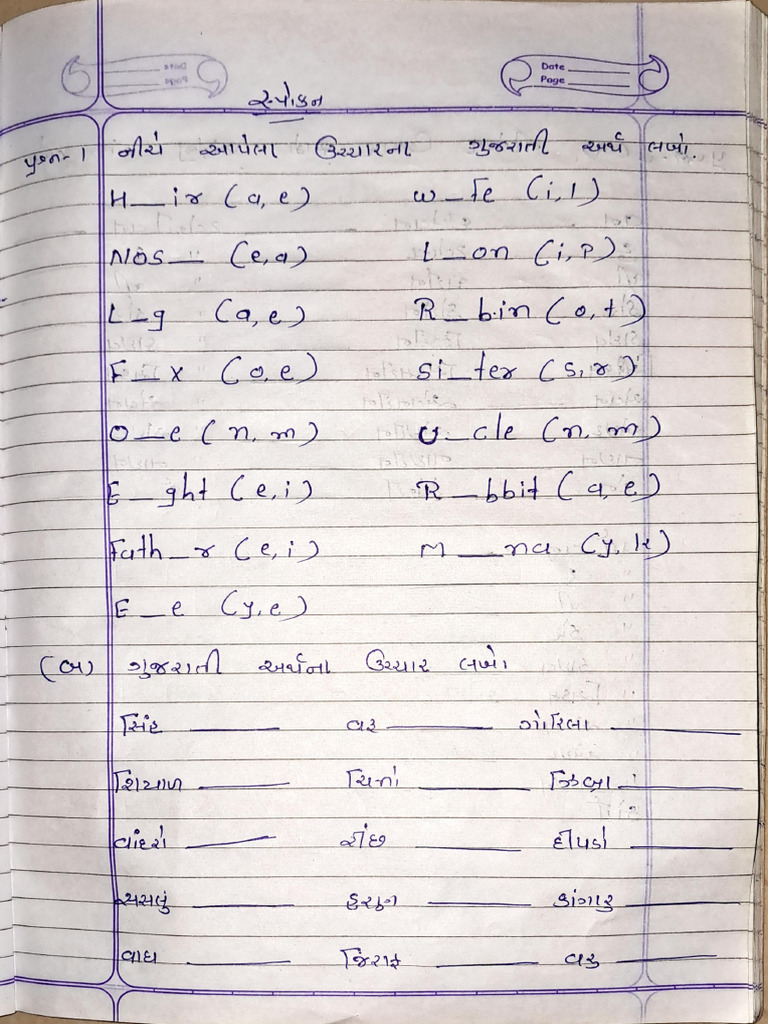 Date
Page
સ્પોકન
પ્રશ્ન-1 નીચે આપેલા ઉચ્ચારના ગુજરાતી અર્થ લખો.
H__ir (a, e) W_fe (i, l)
NOS__ (e, a) L_on (i, P)
L_g (a, e) R_bin (o, t)
F_x (o, e) Si_ter (s, r)
O_e (n, m) U_cle (n, m)
E_ght (e, i) R_bbit (a, e)
Fath_r (e, i) M__na (y, k)
E_e (y, e)
(બ) ગુજરાતી અર્થના ઉચ્ચાર લખો
સિંહ ______ વરૂ ______ ગોરિલા ______
શિયાળ ______ ચિત્તો ______ ઝિબ્રા ______
વાંદરો ______ રીંછ ______ દીપડો ______
સસલું ______ હરણ ______ કાંગારૂ ______
વાઘ ______ જિરાફ ______ વરુ ______